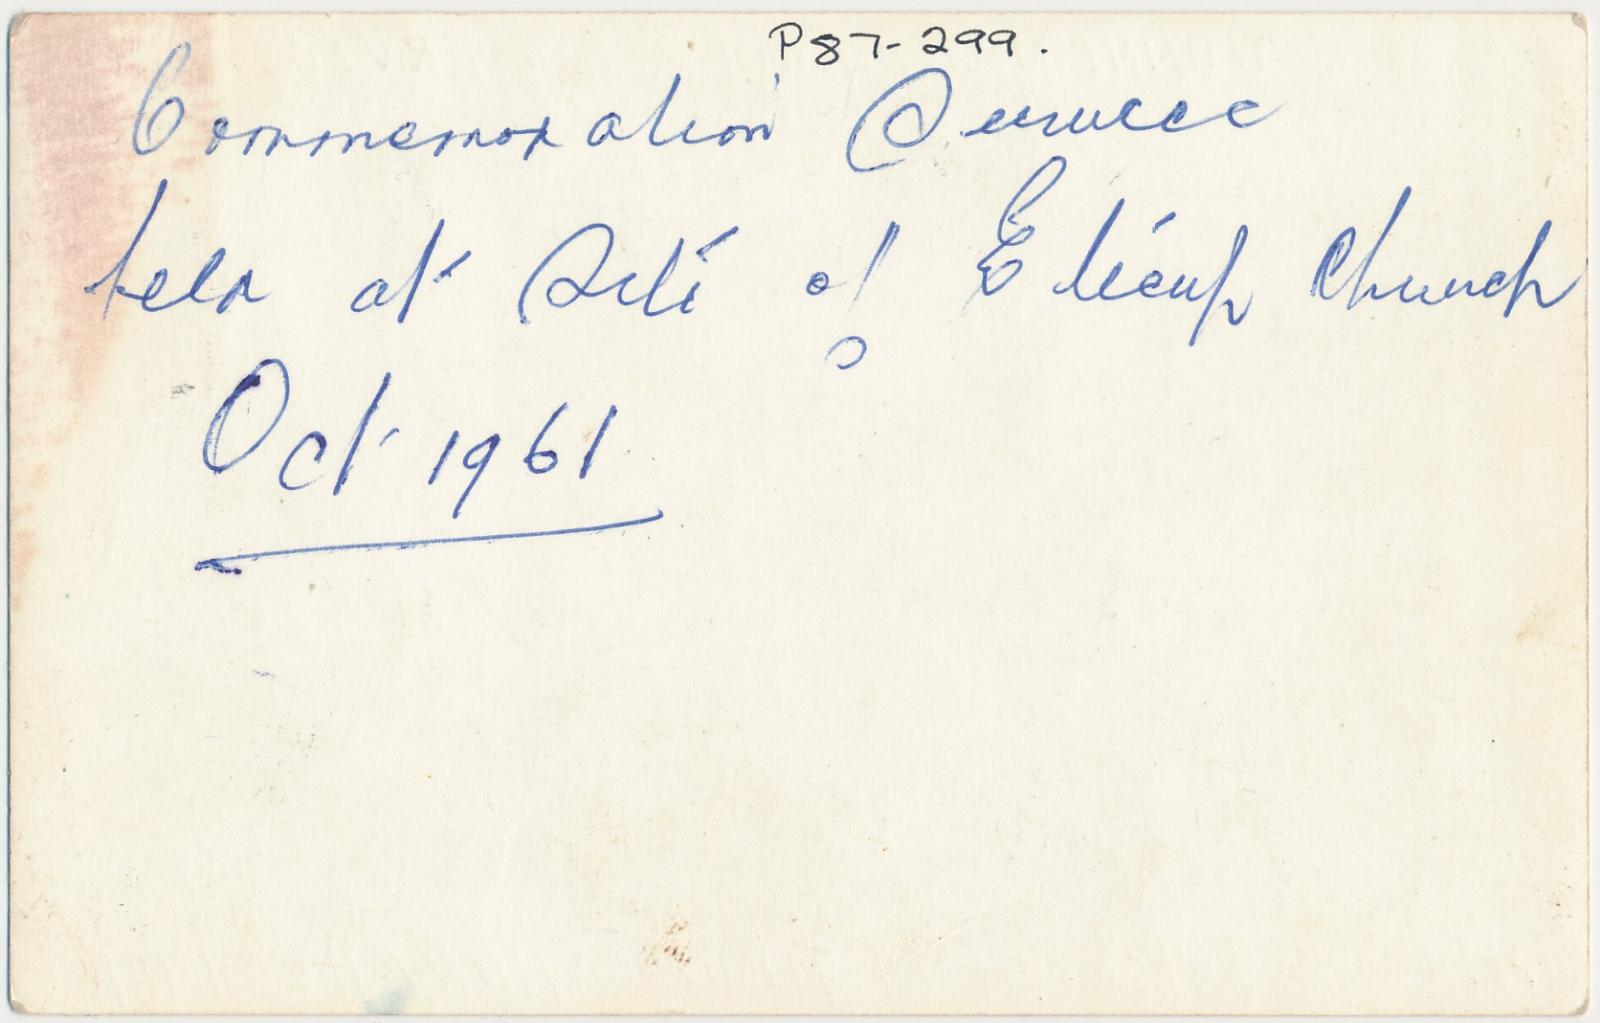 P87-299.
Commemoration Service
held at Site of Eticup Church
Oct 1961